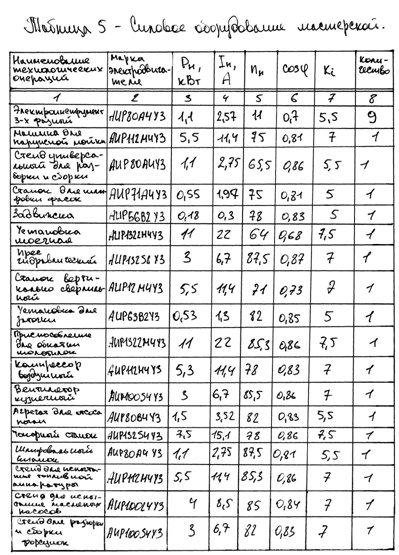 Таблица 5 - Силовое оборудование мастерской.
Наименование технологических операций | Марка электродвигателя | Рн, кВт | Iн, А | nн | cosφ | Ki | Количество
1 | 2 | 3 | 4 | 5 | 6 | 7 | 8
Электроинструмент 3-х фазный | АИР80А4У3 | 1,1 | 2,57 | 11 | 0,7 | 5,5 | 9
Машина для наружной мойки | АИР112М4У3 | 5,5 | 11,4 | 75 | 0,81 | 7 | 1
Стенд универсальный для разборки и сборки | АИР80А4У3 | 1,1 | 2,75 | 65,5 | 0,86 | 5,5 | 1
Станок для шлифовки фасок | АИР71А4У3 | 0,55 | | 75 | 0,81 | 5 | 1
Задвижка | АИР56В2У3 | 0,18 | 0,3 | 78 | 0,83 | 5 | 1
Установка моечная | | 11 | 22 | 64 | 0,68 | 7,5 | 1
Прес гидравлический | | 3 | 6,7 | 87,5 | 0,87 | 7 | 1
Станок вертикально сверлильный | АИР112М4У3 | 5,5 | 11,4 | 71 | 0,73 | 7 | 1
Установка для заточки | АИР63В2У3 | 0,53 | 1,3 | 82 | 0,85 | 5 | 1
Приспособление для обкатки | | 11 | 22 | 85,3 | 0,86 | 7,5 | 1
Компрессор воздушный | АИР112М4У3 | 5,3 | 11,4 | 78 | 0,83 | 7 | 1
Вентилятор кузнечный | АИР100S4У3 | 3 | 6,7 | 85,5 | 0,86 | 7 | 1
Агрегат для отсоса пыли | АИР80В4У3 | 1,5 | 3,52 | 82 | 0,83 | 5,5 | 1
Токарный станок | АИР132S4У3 | 7,5 | 15,1 | 78 | 0,86 | 7,5 | 1
Шлифовальный станок | АИР80А4У3 | 1,1 | 2,75 | 87,5 | 0,81 | 5,5 | 1
Стенд для испытания топливной аппаратуры | АИР112М4У3 | 5,5 | 11,4 | 85,3 | 0,86 | 7 | 1
Стенд для испытание масленых насосов | АИР100L4У3 | 4 | 8,5 | 85 | 0,84 | 7 | 1
Стенд для разборки и сборки форсунок | АИР100S4У3 | 3 | 6,7 | 82 | 0,83 | 7 | 1